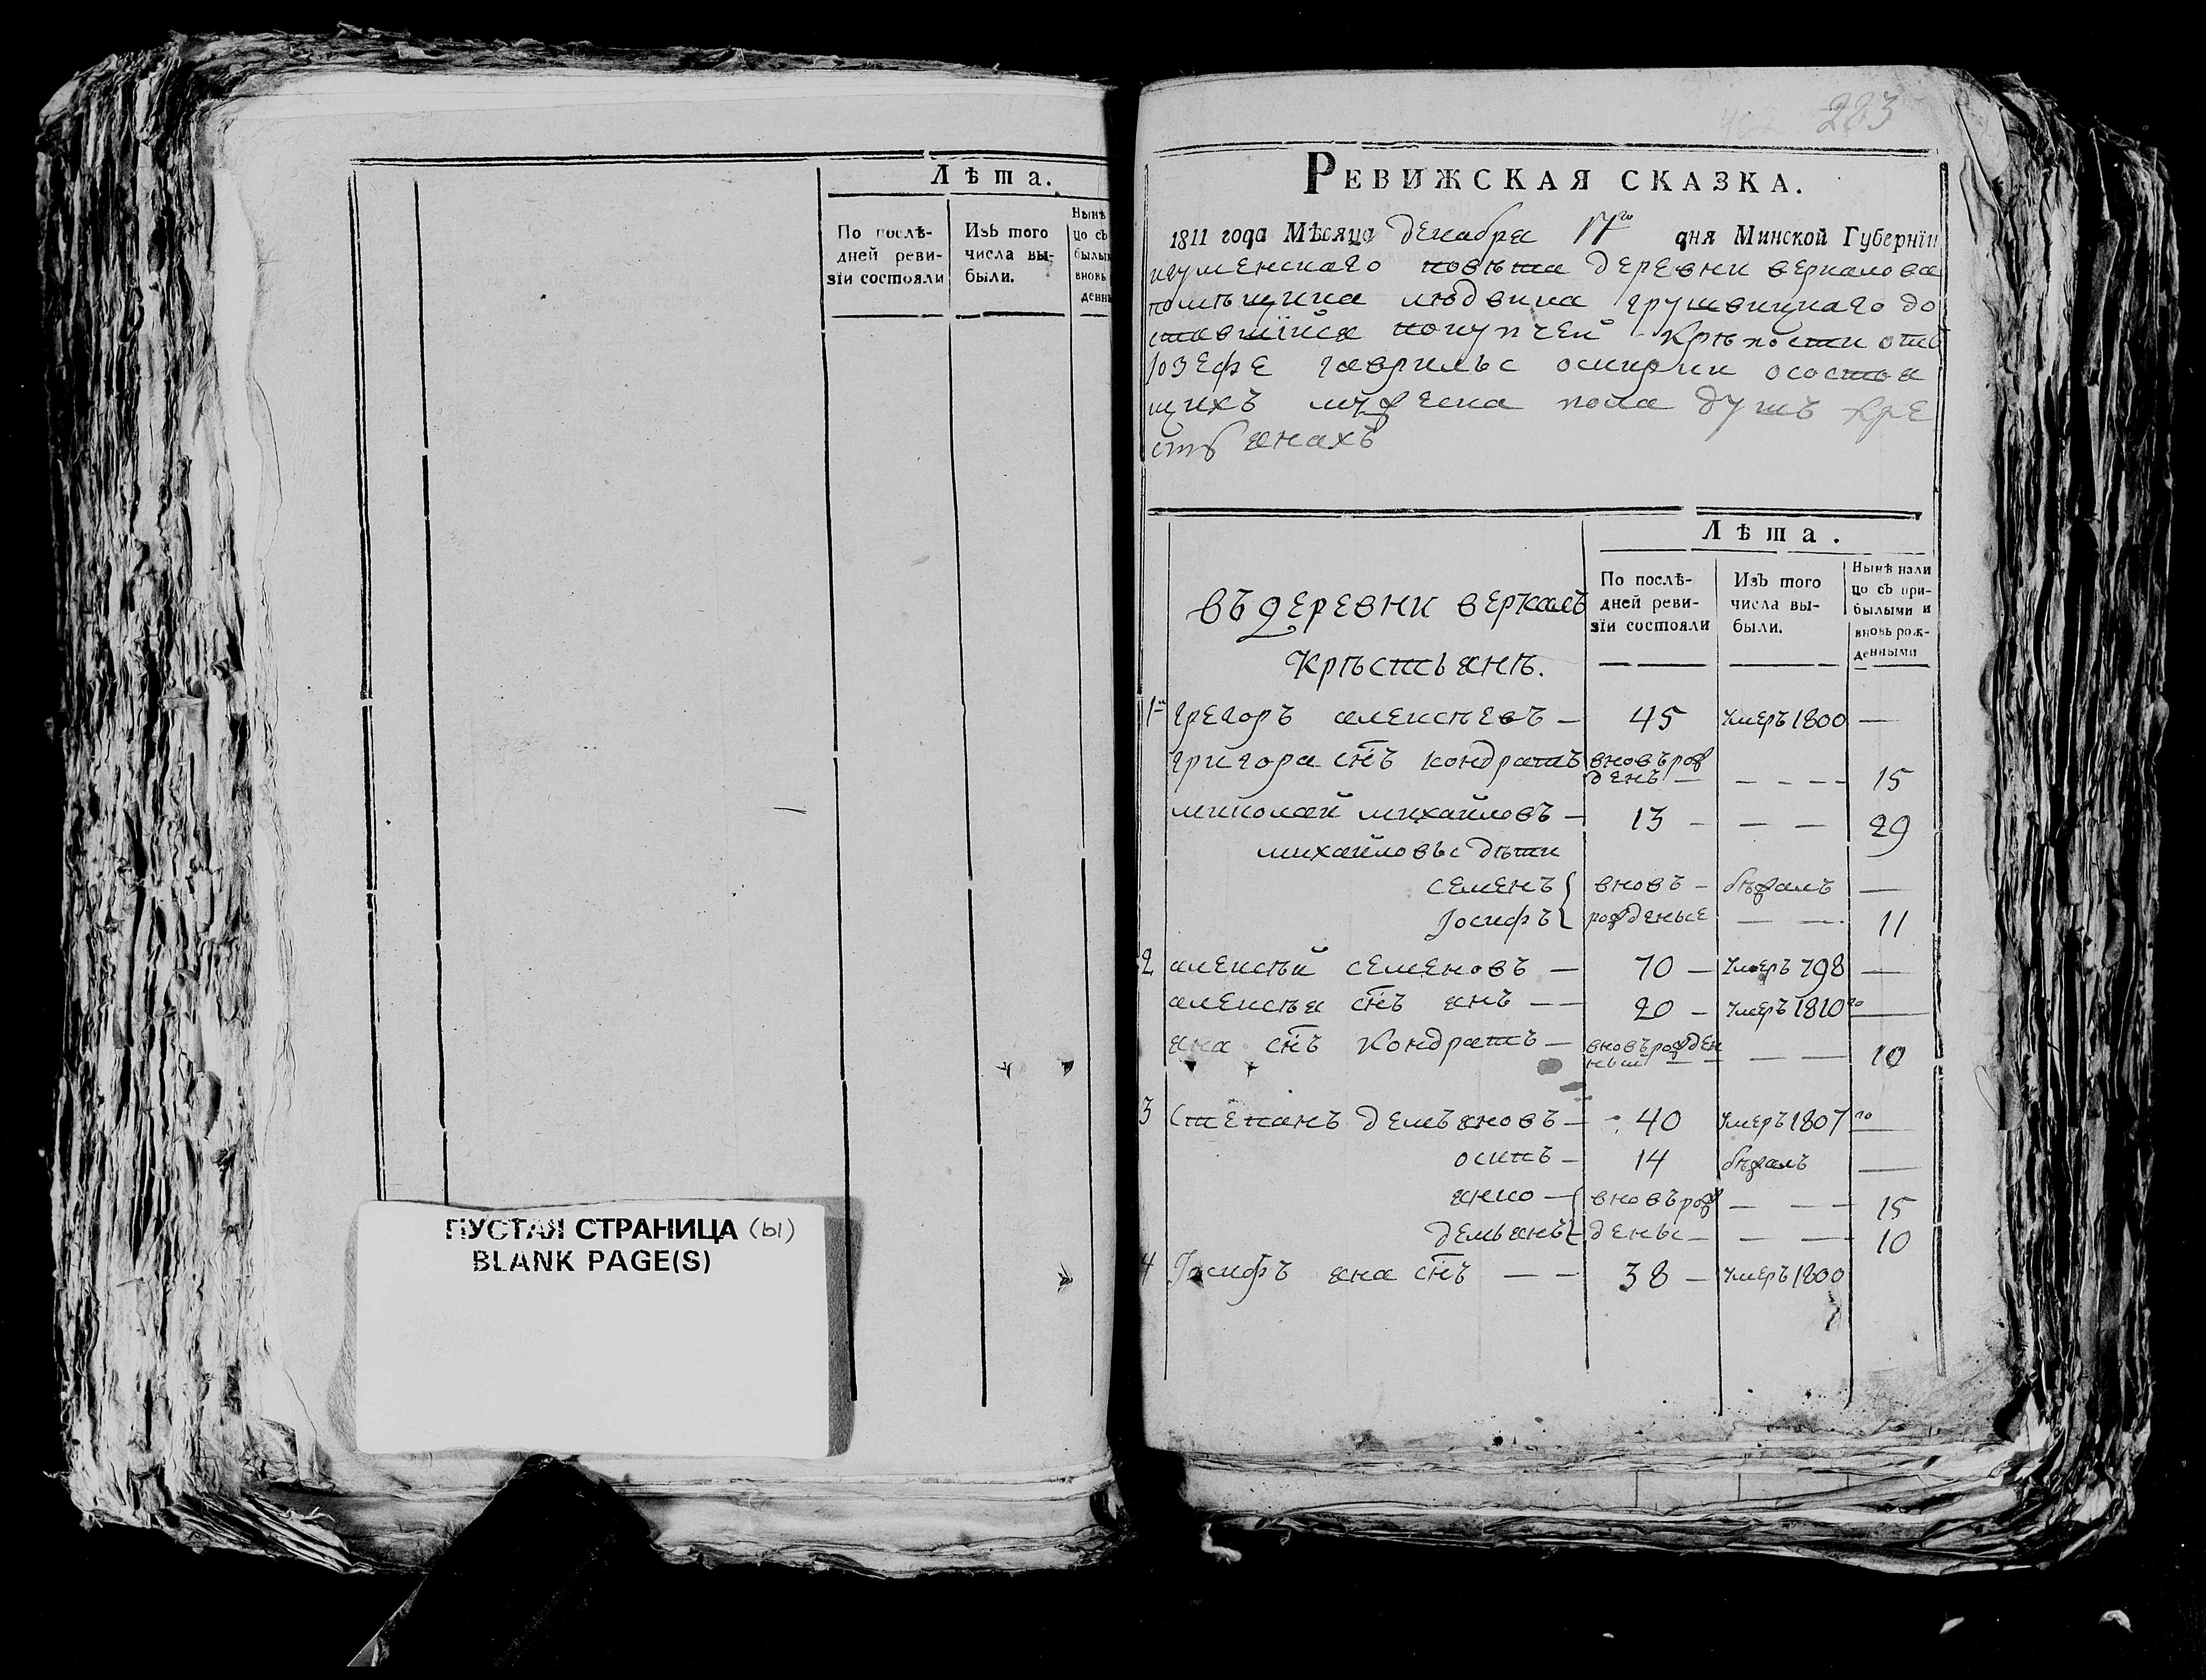 Лѣта.
По послѣ-
дней реви-
зїи состояли
Изъ того
числа вы-
были.
Нынѣ
цо съ
былы
вновь
денн
ПУСТАЯ СТРАНИЦА (ы)
BLANK PAGE(S)
283
РЕВИЖСКАЯ СКАЗКА.
1811 года Мѣсяца декабря 17го дня Минской Губернїи
игуменскаго повѣта деревни веркалова
помѣщика людвика грушвицкаго до
ставшїйся покупчей крѣпости отъ
Іозефе гаврилы осостоя
щихъ мужеска пола душъ кре
стьянахъ
Лѣта.
въ деревни веркалъ
Крѣстьянѣ.
По послѣ-
дней реви-
зїи состояли
Изъ того
числа вы-
были.
Нынѣ нали
цо съ при-
былыми и
вновь рож-
денными
1 грегоръ алексѣевъ — 45 умеръ 1800 —
григора снъ кондратъ вновърож
денъ — — — — — 15
миколай михайловъ — 13 — — — 29
михайловы дѣти
семенъ { вновь — бѣжалъ —
Іосифъ { рожденые — — 11
2 алексѣй семеновъ — 70 — умеръ 798 —
алексѣя снъ янъ — — 20 — умеръ 1810го —
яна снъ кондратъ — вновърожден
ный — — — — 10
3 степанъ демьяновъ — 40 умеръ 1807го —
осипъ — 14 бѣжалъ —
янко — { вновърож — — — 15
демьянъ { дены — — — 10
4 Іосифъ яна снъ — — 38 — умеръ 1800